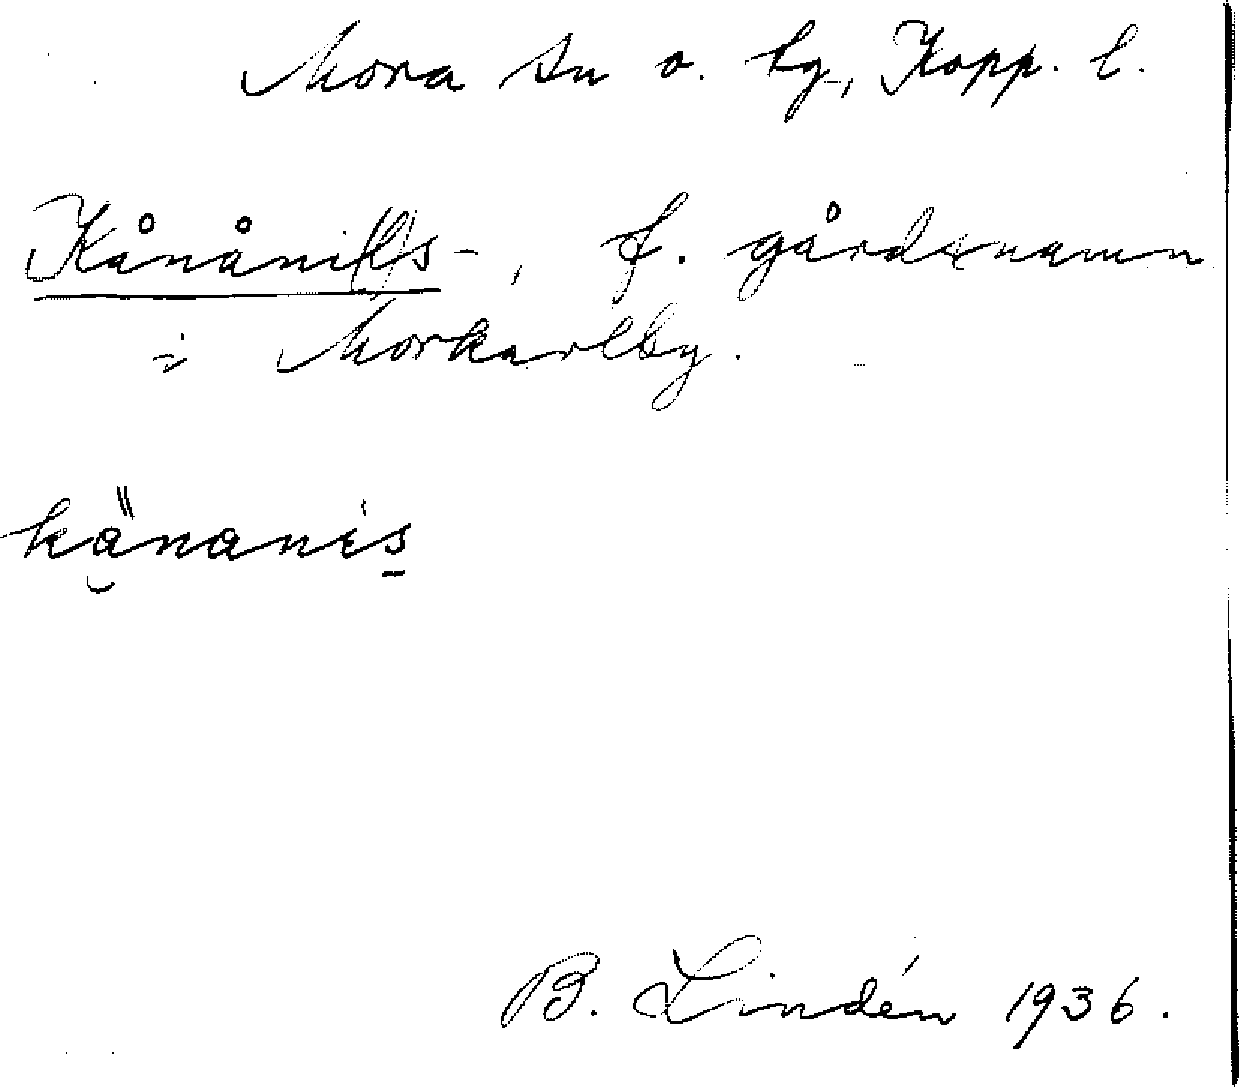 Mora sn o. by, Kopp. l.
Kånånils-, f. gårdsnamn
i Morkarlby.
känanis
B. Lindén 1936.